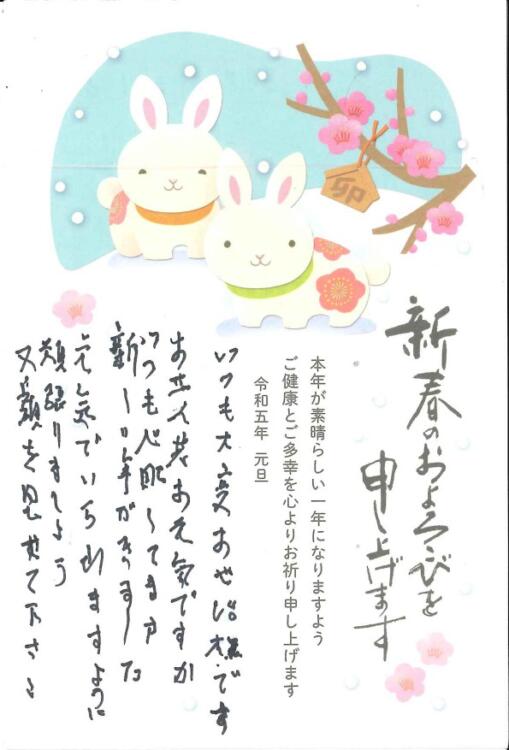 卯
新春のおよろこびを
申し上げます
本年が素晴らしい一年になりますよう
ご健康とご多幸を心よりお祈り申し上げます
令和五年 元旦
いつも大変お世話様です
お二人共お元気ですか
いつも心配してます
新しい年がきました
元気でいられますように
頑張りましょう
又顔を見せて下さい